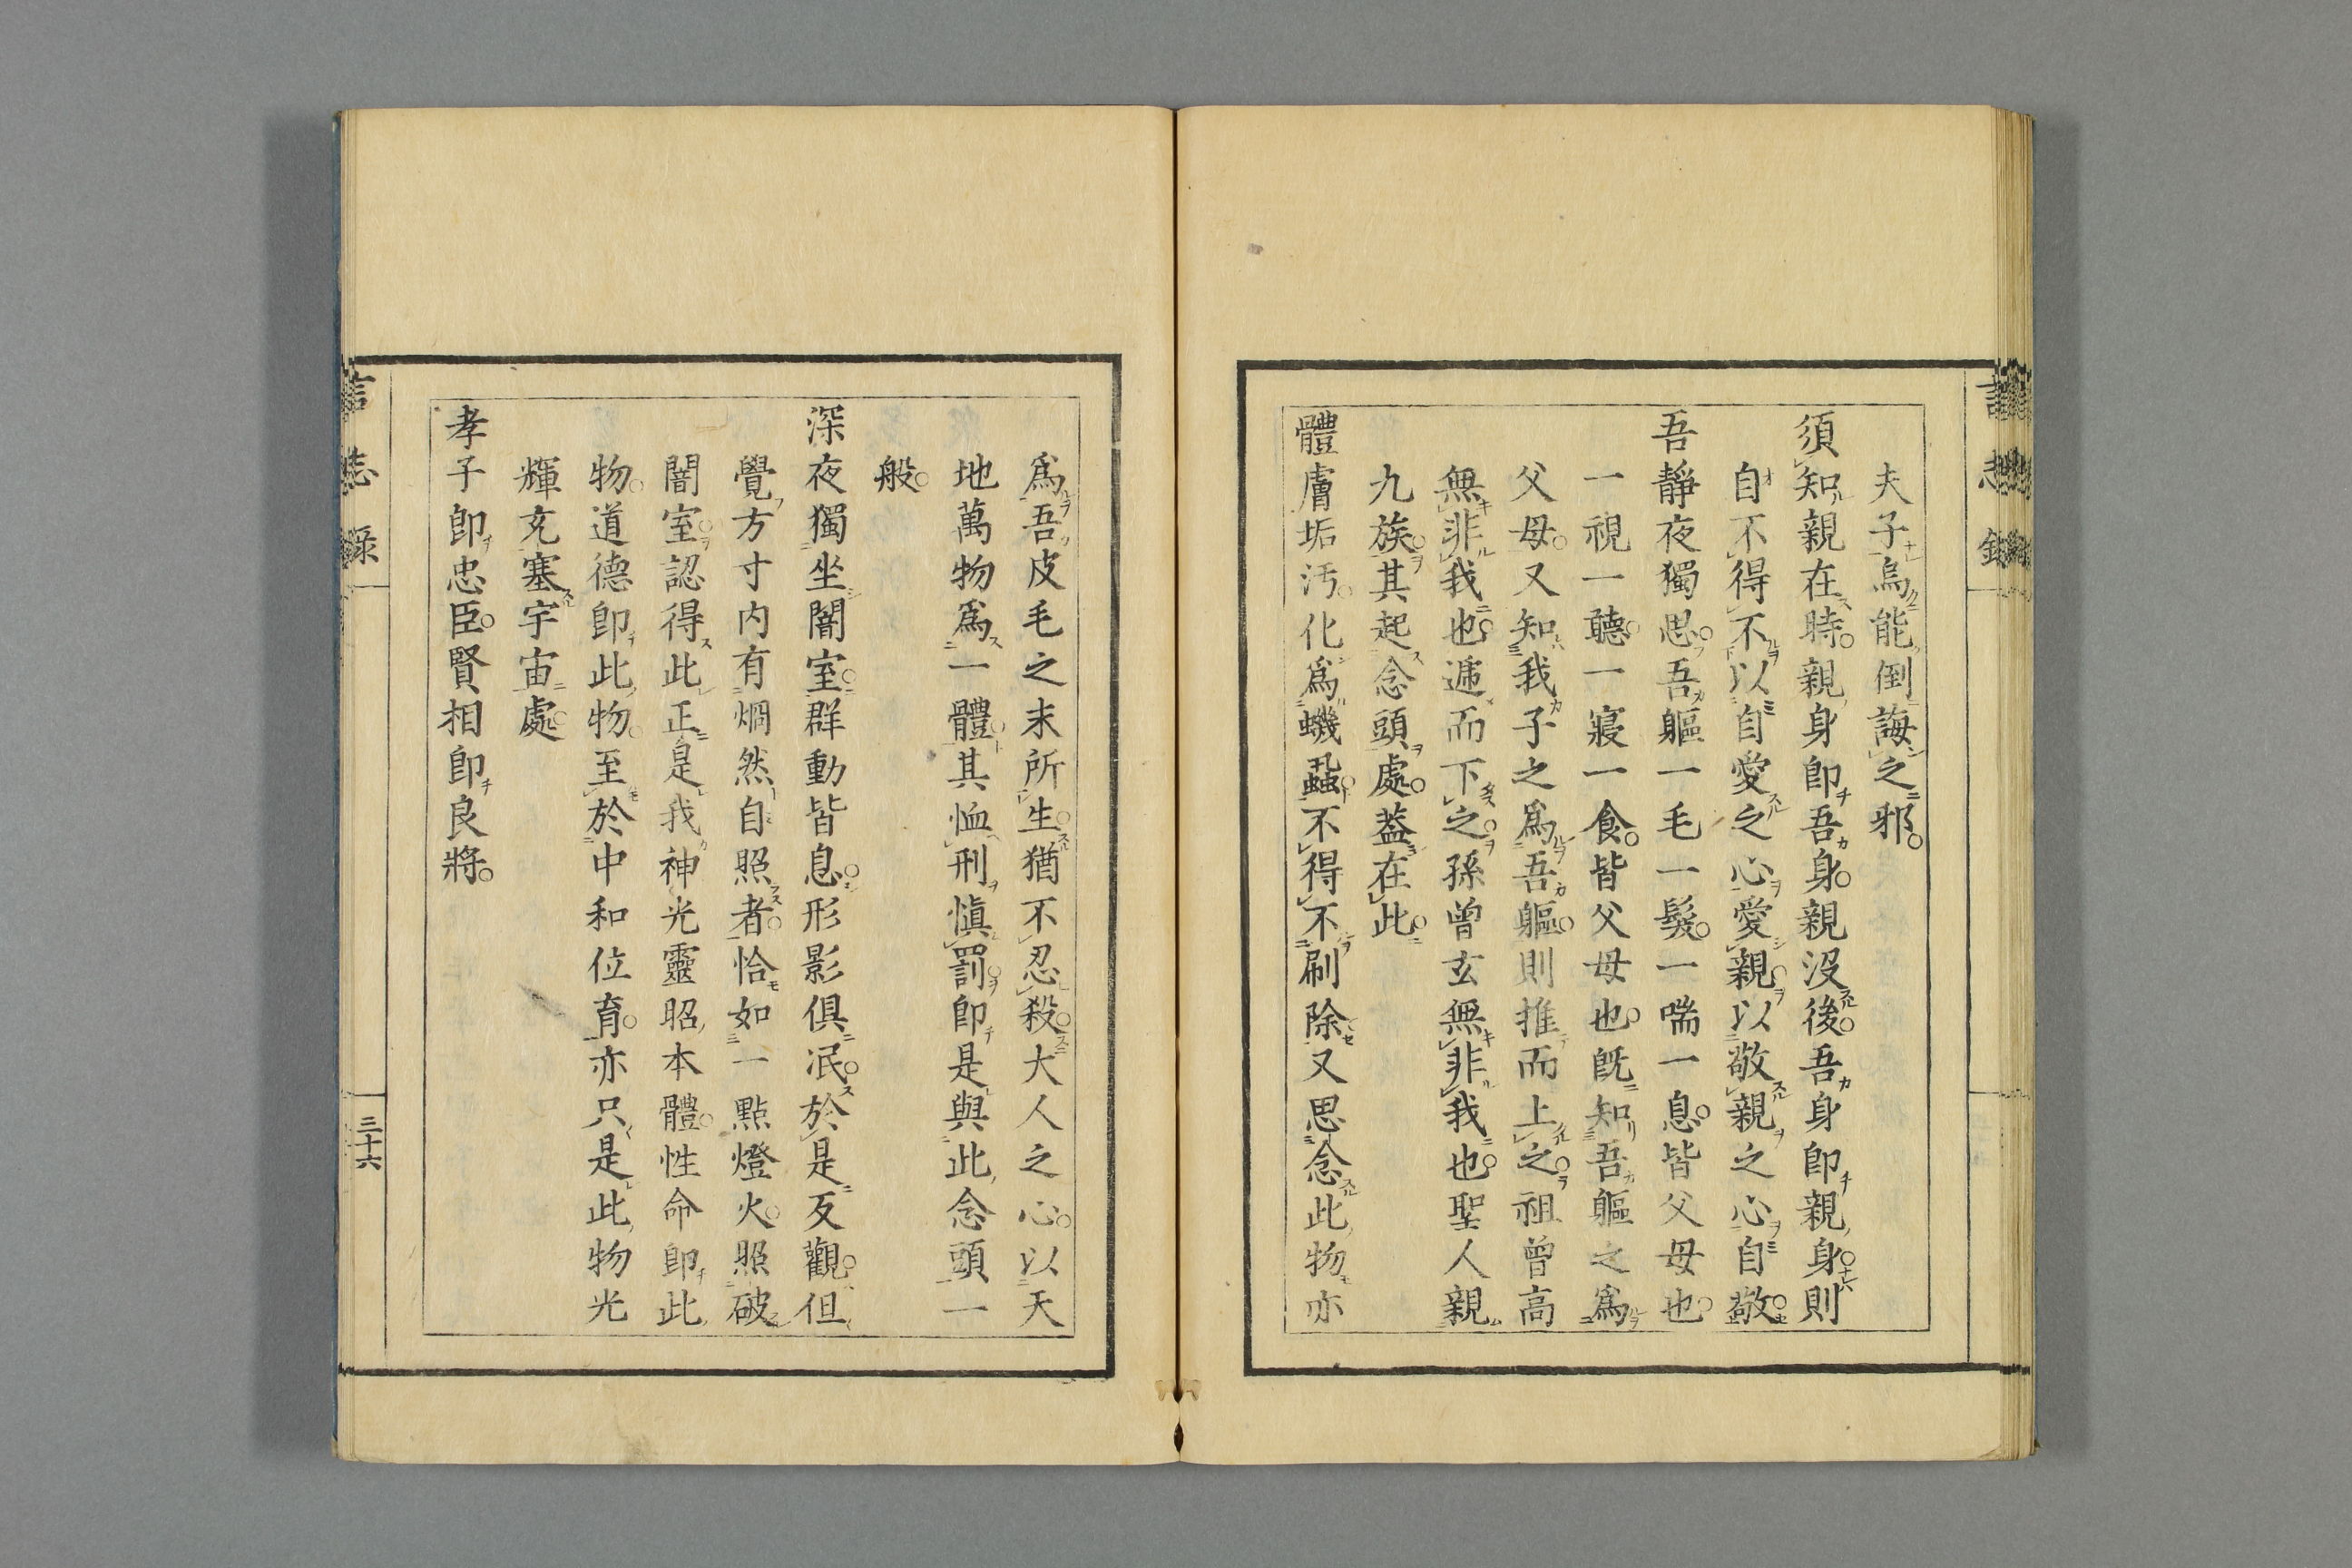 夫子烏能倒誨之邪。
須知親在時。親身卽吾身。親沒後。吾身卽親身。則
自不得不以自愛之心愛親。以敬親之心自敬。
吾靜夜獨思。吾軀一毛一髮。一喘一息。皆父母也。
一視一聽。一寢一食。皆父母也。旣知吾軀之爲
父母。又知我子之爲吾軀。則推而上之。祖曾高
無非我也。遞而下之。孫曾玄無非我也。聖人親
九族。其起念頭處。蓋在此。
體膚垢汚。化爲蟣蝨。不得不刷除。又思念此物亦
爲吾皮毛之末所生。猶不忍殺。大人之心。以天
地萬物爲一體。其恤刑愼罰。卽是與此念頭一
般。
深夜獨坐闇室。群動皆息。形影俱泯。於是反觀。但
覺方寸內有烱然自照者。恰如一點燈火。照破
闇室。認得此正是我神光靈昭本體。性命卽此
物。道德卽此物。至於中和位育。亦只是此物光
輝充塞宇宙處。
孝子卽忠臣。賢相卽良將。
言志錄
三十六